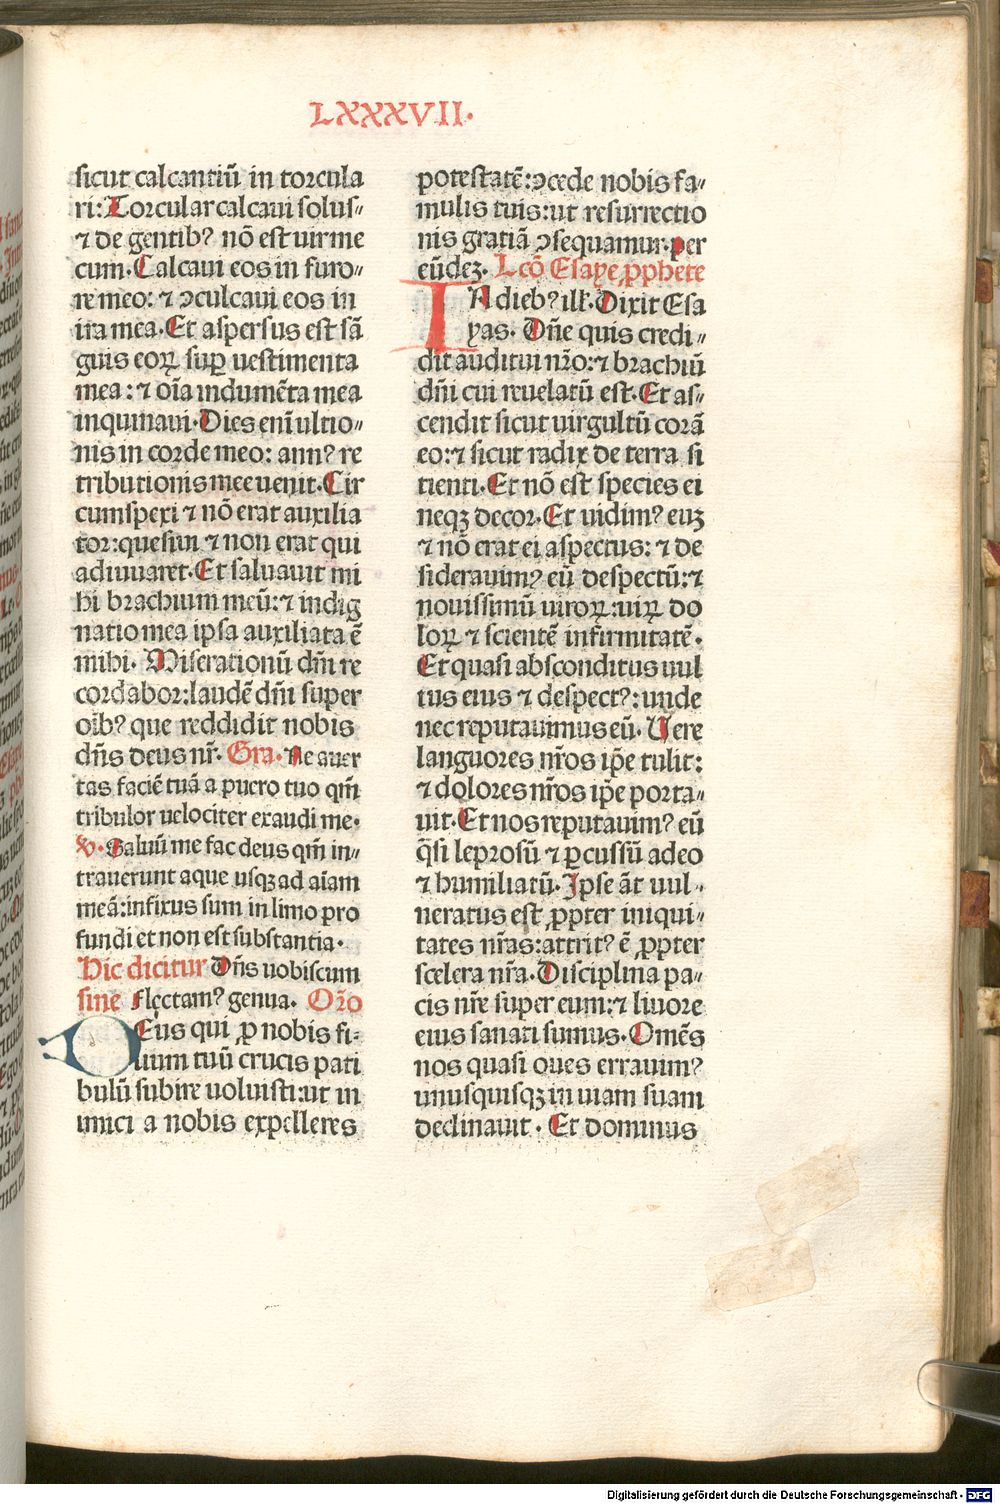 LXXXVII.
sicut calcantiū in torcula
ri: Torcular calcaui solus⸗
⁊ de gentibꝰ nō est uir me
cum. Calcaui eos in furo⸗
re meo: ⁊ ↄculcaui eos in
ira mea. Et aspersus est sā
guis eoꝝ suꝑ uestimenta
mea: ⁊ oīa indumēta mea
inquinaui. Dies enī ultio⸗
nis in corde meo: annꝰ re
tributionis mee uenit. Cir
cumspexi ⁊ nō erat auxilia
tor: quesiui ⁊ non erat qui
adiuuaret. Et saluauit mi
hi brachium meū: ⁊ indig
natio mea ipsa auxiliata ē
mihi. Miserationū dn̄i re
cordabor: laudē dn̄i super
oībꝰ que reddidit nobis
dn̄s deus nr̄. Gra. Ne auer
tas faciē tuā a puero tuo qm̄
tribulor uelociter exaudi me.
℣. Saluū me fac deus qm̄ in⸗
trauerunt aque usqꝫ ad aīam
meā: infixus sum in limo pro
fundi et non est substantia.
Hic dicitur Dn̄s uobiscum
sine Flectamꝰ genua. Or̄o
Deus qui ꝓ nobis fi⸗
lium tuū crucis pati
bulū subire uoluisti: ut in
imici a nobis expelleres
potestatē: ↄcede nobis fa⸗
mulis tuis: ut resurrectio
nis gratiā ↄsequamur. per
eūdeꝫ. Lcō Esaye ꝓphete
IN diebꝰ ill̄. Dixit Esa
yas. Dn̄e quis credi⸗
dit auditui nr̄o: ⁊ brachiū
dn̄i cui reuelatū est. Et as⸗
cendit sicut uirgultū corā
eo: ⁊ sicut radix de terra si
tienti. Et nō est species ei
neqꝫ decor. Et uidimꝰ euꝫ
⁊ nō erat ei aspectus: ⁊ de
siderauimꝰ eū despectū: ⁊
nouissimū uiroꝝ: uiꝝ do
loꝝ ⁊ scientē infirmitatē.
Et quasi absconditus uul
tus eius ⁊ despectꝰ: unde
nec reputauimus eū. Vere
languores nr̄os ip̄e tulit:
⁊ dolores nr̄os ip̄e porta⸗
uit. Et nos reputauimꝰ eū
q̄si leprosū ⁊ ꝑcussū a deo
⁊ humiliatū. Ipse āt uul⸗
neratus est ꝓpter iniqui⸗
tates nr̄as: attritꝰ ē ꝓpter
scelera nr̄a. Disciplina pa⸗
cis nr̄e super eum: ⁊ liuore
eius sanati sumus. Omēs
nos quasi oues errauimꝰ
unusquisqꝫ in uiam suam
declinauit. Et dominus
Digitalisierung gefördert durch die Deutsche Forschungsgemeinschaft - DFG